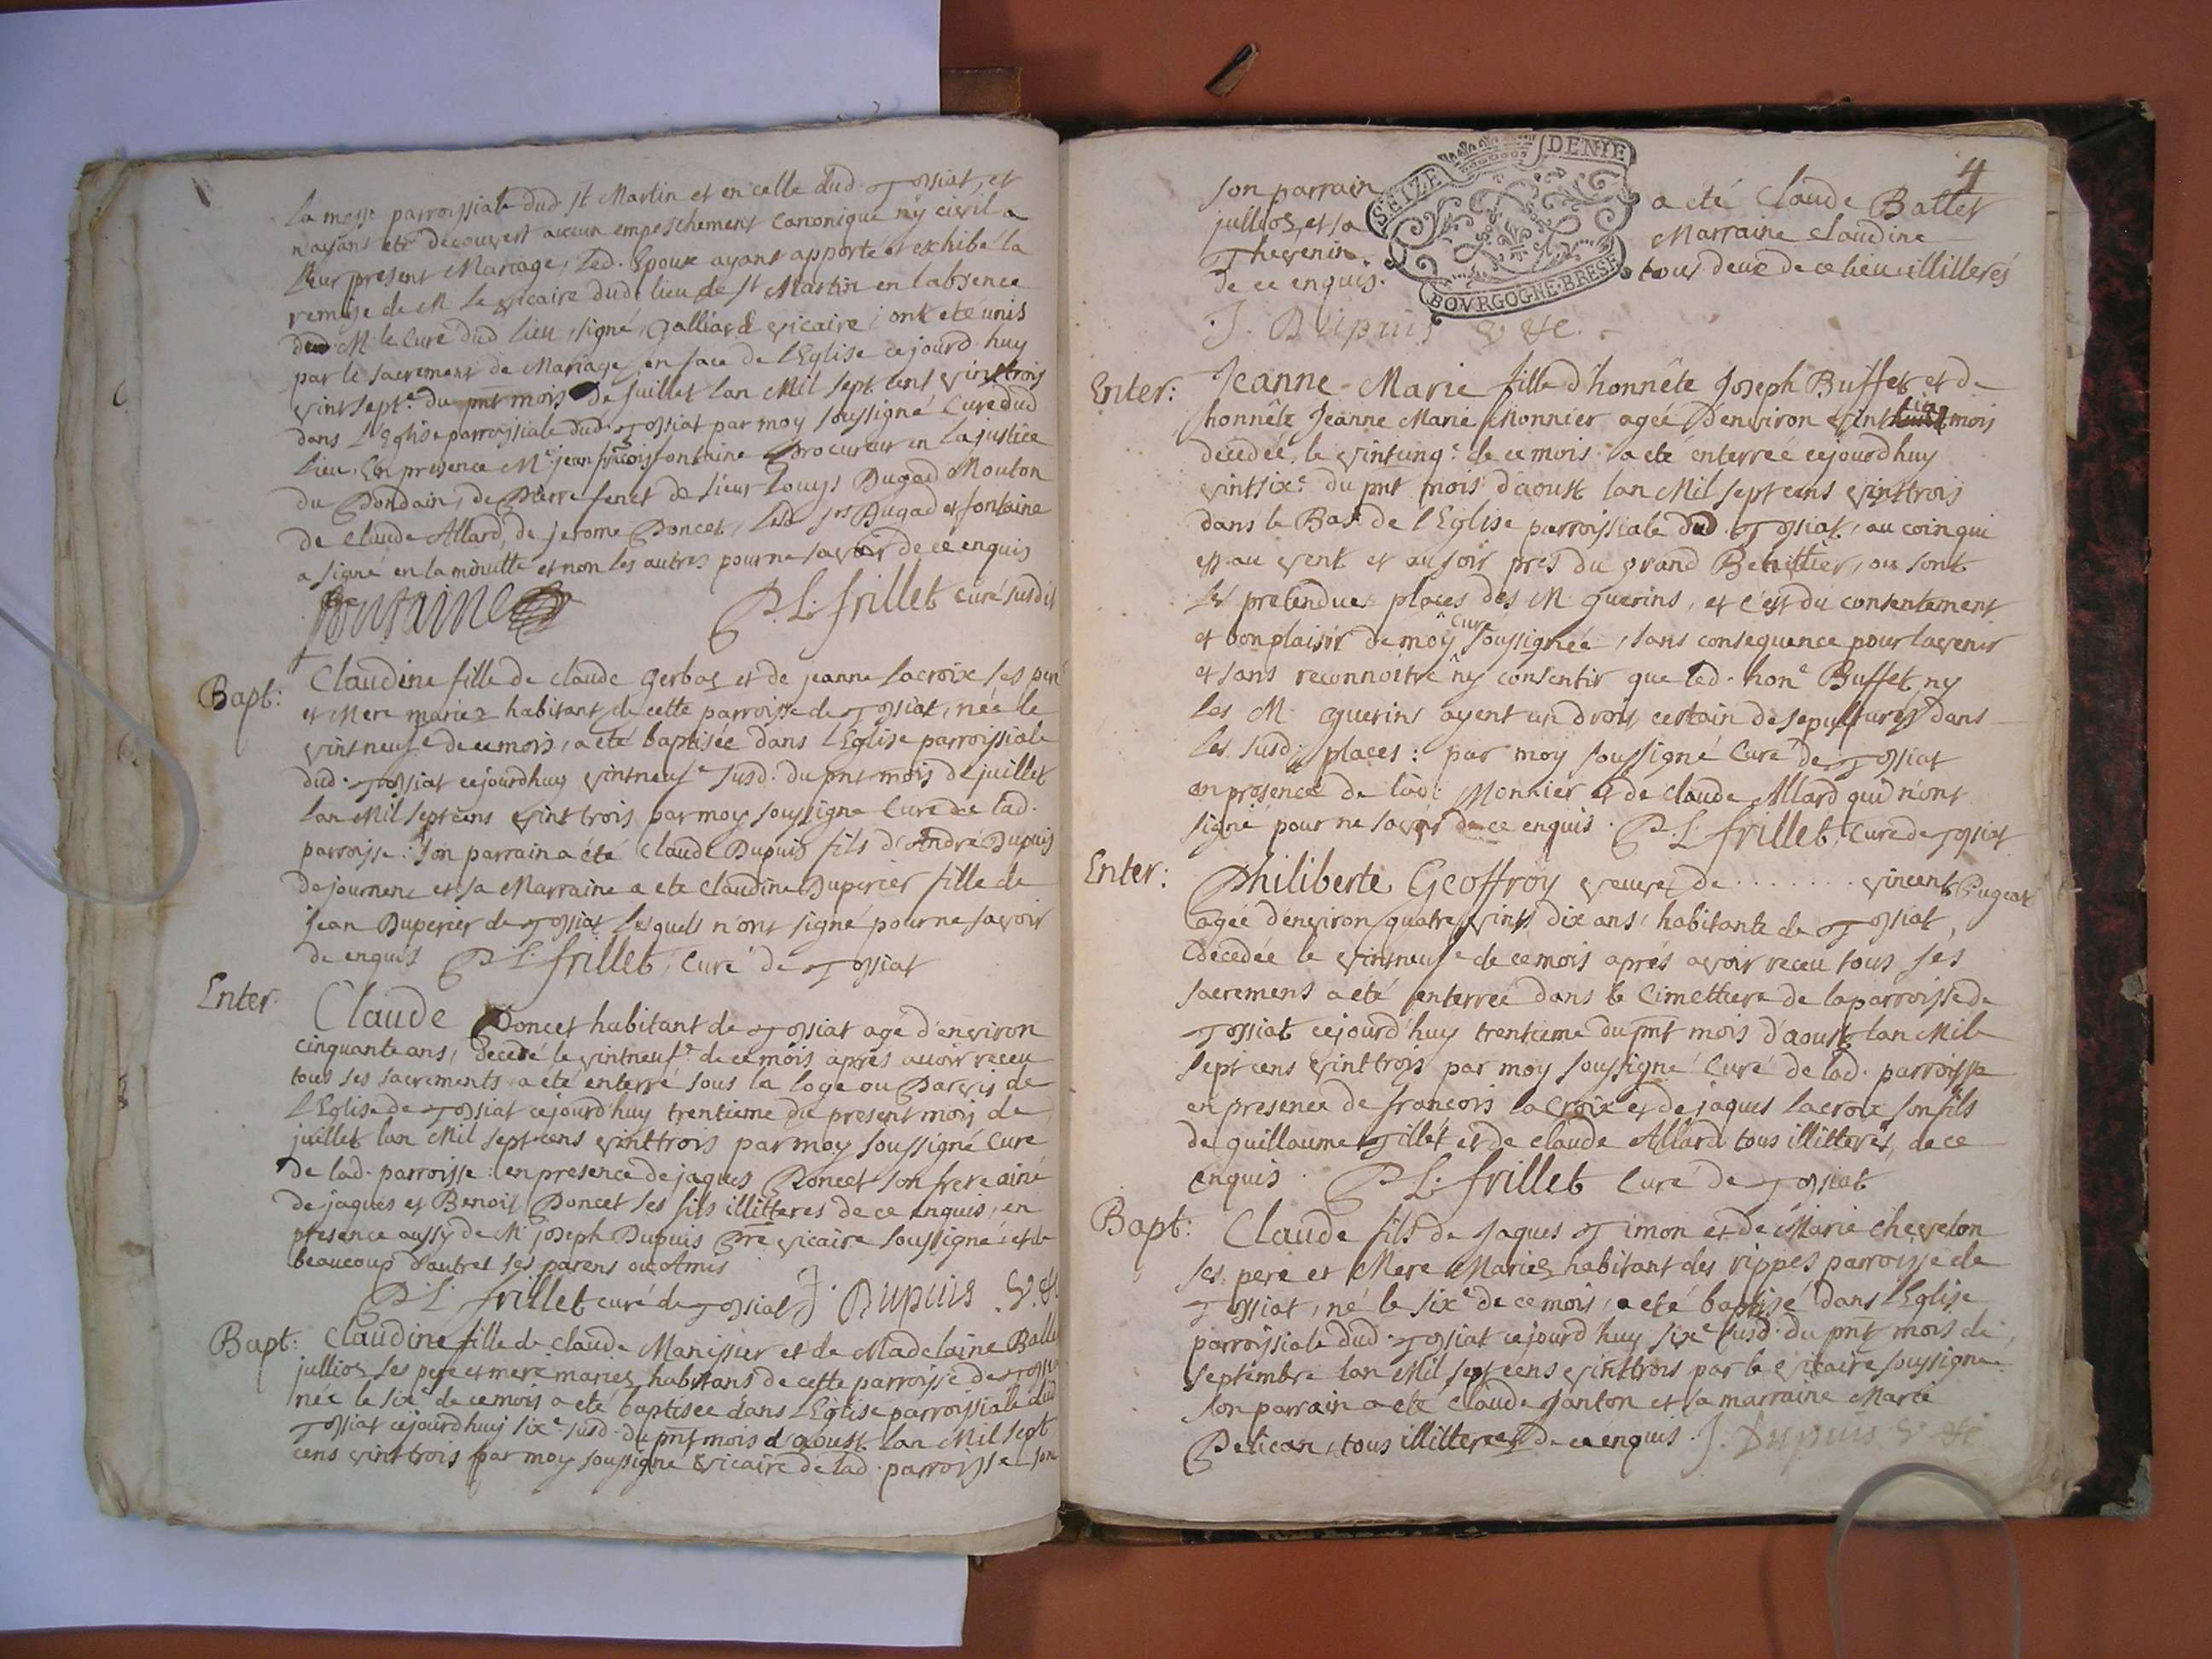 la messe parroissiale dud. st Martin et en celle dud. Tossiat, et
n'ayant eté decouvert aucun empeschement canonique ny civil a
leur present Mariage, led. Epoux ayant apporté et exhibé la
remise de M le vicaire dud. lieu de st Martin en l'absence
dud. M. le Curé dud lieu, signé, Galliard vicaire; ont eté unis
par le sacrement de Mariage en face de l'Eglise cejourd'huy
vintsept.e du pnt mois de juillet lan Mil sept cens vint trois
dans l'Eglise parroissiale dud. Tossiat par moy soussigné Curé dud
lieu. En presence Me jean françois fontaine Procureur en la justice
du Dondain, de Pierre fenet de sieur Louys Dugad Mouton
de Claude Allard, de jerome Poncet, lesd. srs Dugad et fontaine
a signé en la minutte et non les autres pour ne savoir de ce enquis
fontaine P. L. frillet curé susdit
Bapt: Claudine fille de claude Gerbaz et de jeanne Lacroix ses pere
et Mere mariez habitant de cette parroisse de Tossiat, née le
vintneuf.e de ce mois, a eté baptisée dans l'Eglise parroissiale
dud. Tossiat cejourdhuy vintneuf.e susd. du pnt mois de juillet
lan Mil sept cens vint trois par moy soussigné Curé de lad.
parroisse: son parrain a été Claude Dupuis fils d'André Dupuis
de journenc et sa Marraine a ete claudine Duperier fille de
jean Duperier de Tossiat lesquels n'ont signé pour ne savoir
de enquis P. L. frillet, Curé de Tossiat
Enter. Claude Poncet habitant de Tossiat agé d'environ
cinquante ans, decedé le vintneuf.e de ce mois aprés avoir receu
tous ses sacrements a été enterré sous la loge ou Parvis de
l'Eglise de Tossiat cejourd'huy trentieme du present mois de
juillet lan Mil sept cens vint trois par moy soussigné Curé
de lad. parroisse: en presence de jaques Poncet son frere ainé
de jaques et Benoit Poncet ses fils illitteres de ce enquis, en
presence aussy de Mr joseph Dupuis Pre vicaire soussigné et de
beaucoup d'autres ses parens ou Amis
P. L. frillet curé de Tossiat J. Dupuis
Bapt: Claudine fille de Claude Manissier et de Madelaine
jullioz ses pere et mere mariez habitans de cette parroisse de
née le six.e de ce mois a eté baptisée dans l'Eglise parroissiale dud
Tossiat cejourdhuy six.e susd. du pnt mois d'aoust lan Mil sept
cens vint trois par moy soussigné vicaire de lad. parroisse son
4
SEIZE DENIE
BOVRGOGNE·BRESE
son parrain a eté Claude Ballet
jullioz, et sa Marraine claudine
Thevenin, tous deux de ce lieu illitterés
de ce enquis.
J. Dupuis
Enter: Jeanne-Marie fille d'honnête Joseph Buffet et de
honnête Jeanne Marie Monnier agée d'environ vint cinq mois
decedée, le vintcinq.e de ce mois a eté enterrée cejourdhuy
vintsix.e du pnt mois d'aoust lan Mil sept cens vint trois
dans le Bas de l'Eglise parroissiale dud. Tossiat, au coin qui
est au vent et au soir prés du grand Benittier, ou sont
les pretendues places des M. Guerins, et c'est du consentement
et bon plaisir de moy Curé soussignée, sans consequence pour lavenir
et sans reconnoitre ny consentir que led. hon.e Buffet ny
les M. Guerins ayent un droit certain de sepultures dans
les susd. places: par moy soussigné Curé de Tossiat
en presence de lad. Monnier et de Claude Allard qui n'ont
signé pour ne savoir de ce enquis. P. L. frillet, Curé de Tossiat
Enter: Philiberte Geoffroy veuve de ........ vincent Pugeat
agée d'environ quatre vints dix ans, habitante de Tossiat,
decedée le vintneuf.e de ce mois aprés avoir receu tous ses
sacremens a eté enterrée dans le Cimettiere de la parroisse de
Tossiat cejourd'huy trentieme du pnt mois d'aoust lan Mil
sept cens vint trois par moy soussigné Curé de lad. parroisse
en presence de françois la Croix et de jaques lacroix son fils
de guillaume Tillet et de claude Allard tous illitterés, de ce
enquis. P. L. frillet Curé de Tossiat
Bapt: Claude fils de Jaques Timon et de Marie Chevelon
ses, pere et Mere Mariez habitant des rippes parroisse de
Tossiat, né le six.e de ce mois, a eté baptisé dans l'Eglise
parroissiale dud. Tossiat cejourd'huy six.e susd. du pnt mois de
septembre lan Mil sept cens vint trois par le vicaire soussigné
son parrain a eté Claude Janton et sa marraine Marie
Pelican, tous illitterez de ce enquis. J. Dupuis